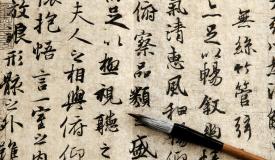 無絲竹管弦
足以暢敘幽
氣清惠風和
俯察品類之盛
足以極視聽之
夫人之相與俯仰
懷抱悟言一室之
放浪形骸之外雖